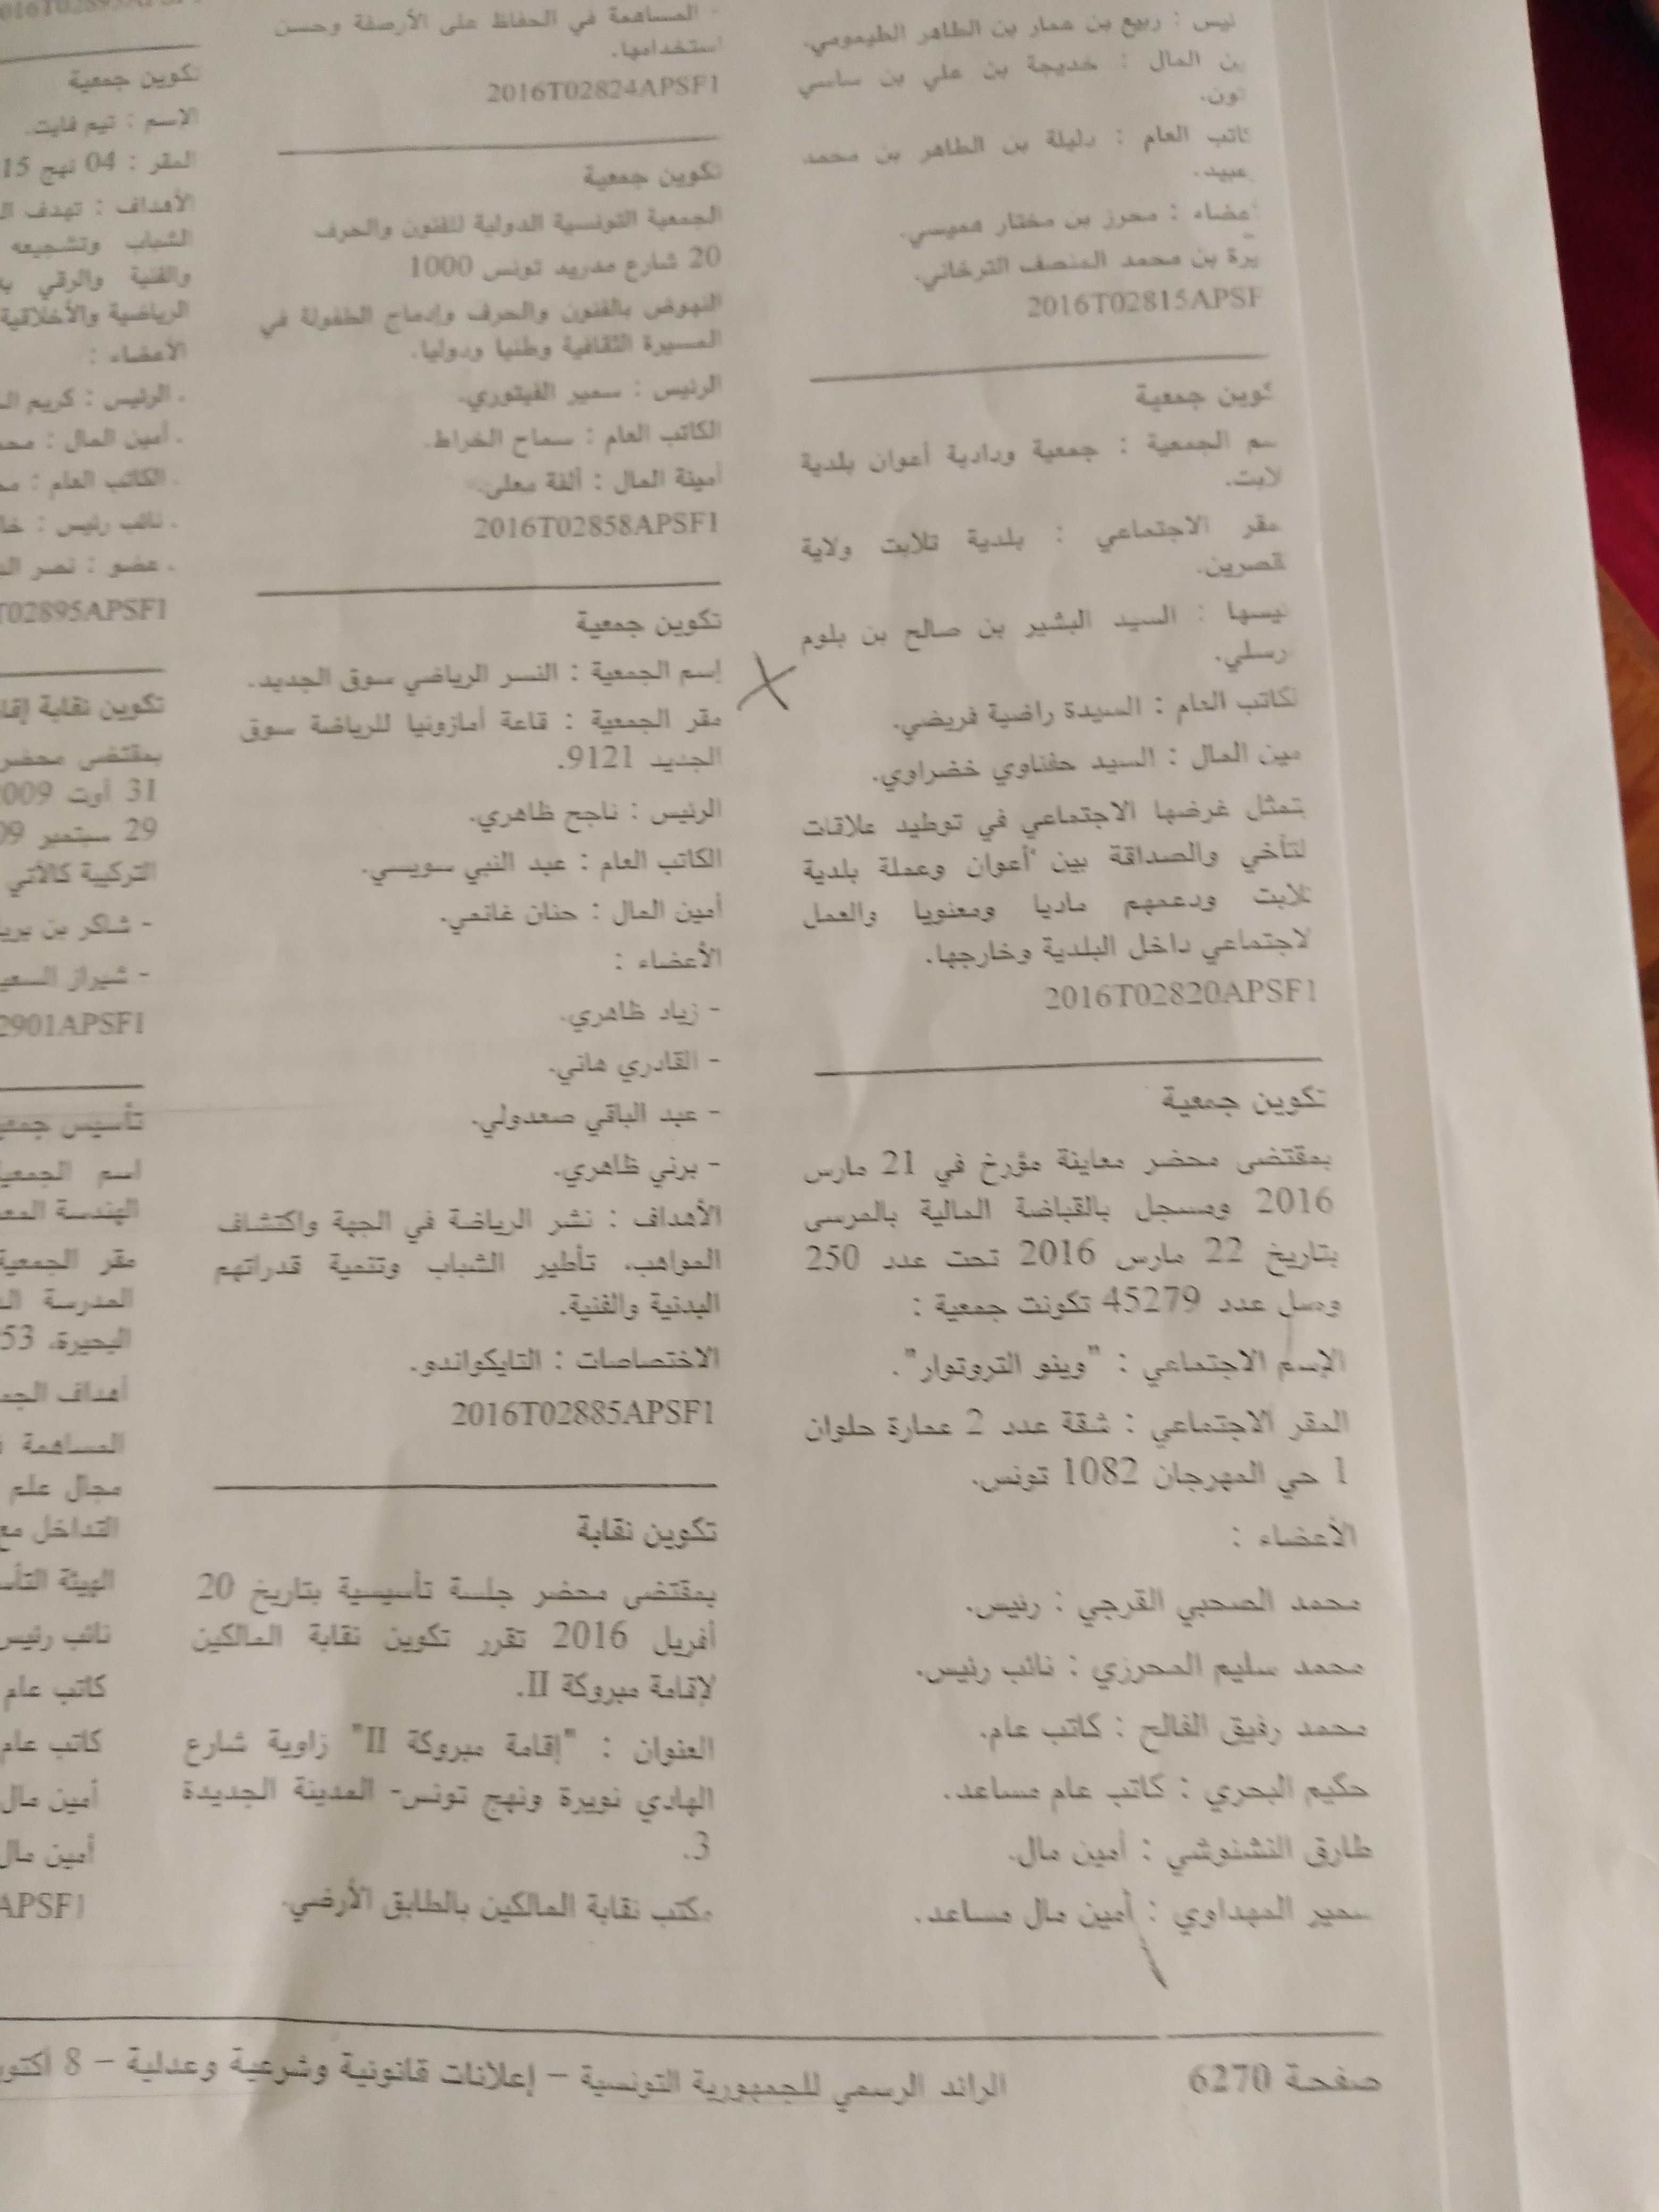 ربيع بن عمار بن الطاهر الطيمومي.
المال : خديجة بن علي بن ساسي
العام : دليلة بن الطاهر بن محمد
عبيد.
محرز بن مختار هميسي.
بن محمد المنصف الترخاني.
2016T02815APSF
جمعية
الجمعية : جمعية ودادية أعوان بلدية
الاجتماعي : بلدية تلابت ولاية
السيد البشير بن صالح بن بلوم
العام : السيدة راضية فريضي.
المال : السيد حفناوي خضراوي.
غرضها الاجتماعي في توطيد علاقات
والصداقة بين أعوان وعملة بلدية
ودعمهم ماديا ومعنويا والعمل
داخل البلدية وخارجها.
2016T02820APSF1
تكوين جمعية
بمقتضى محضر معاينة مؤرخ في 21 مارس
2016 ومسجل بالقباضة المالية بالمرسى
بتاريخ 22 مارس 2016 تحت عدد 250
وصل عدد 45279 تكونت جمعية :
الإسم الاجتماعي : "وينو التروتوار".
المقر الاجتماعي : شقة عدد 2 عمارة حلوان
1 حي المهرجان 1082 تونس.
الأعضاء :
محمد الصحبي القرجي : رئيس.
محمد سليم المحرزي : نائب رئيس.
محمد رفيق الفالح : كاتب عام.
حكيم البحري : كاتب عام مساعد.
طارق النشنوشي : أمين مال.
سمير المهداوي : أمين مال مساعد.
- المساهمة في الحفاظ على الأرصفة وحسن
استخدامها.
2016T02824APSF1
تكوين جمعية
الجمعية التونسية الدولية للفنون والحرف
20 شارع مدريد تونس 1000
النهوض بالفنون والحرف وإدماج الطفولة في
المسيرة الثقافية وطنيا ودوليا.
الرئيس : سمير الفيتوري.
الكاتب العام : سماح الخراط.
أمينة المال : ألفة معلى.
2016T02858APSF1
تكوين جمعية
إسم الجمعية : النسر الرياضي سوق الجديد.
مقر الجمعية : قاعة أمازونيا للرياضة سوق
الجديد 9121.
الرئيس : ناجح ظاهري.
الكاتب العام : عبد النبي سويسي.
أمين المال : حنان غانمي.
الأعضاء :
- زياد ظاهري.
- القادري هاني.
- عبد الباقي صعدولي.
- برني ظاهري.
الأهداف : نشر الرياضة في الجهة واكتشاف
المواهب، تأطير الشباب وتنمية قدراتهم
البدنية والفنية.
الاختصاصات : التايكواندو.
2016T02885APSF1
تكوين نقابة
بمقتضى محضر جلسة تأسيسية بتاريخ 20
أفريل 2016 تقرر تكوين نقابة المالكين
لإقامة مبروكة II.
العنوان : "إقامة مبروكة II" زاوية شارع
الهادي نويرة ونهج تونس- المدينة الجديدة
3.
مكتب نقابة المالكين بالطابق الأرضي.
تكوين جمعية
الإسم : تيم فايت.
المقر : 04 نهج 15
الأهداف : تهدف
الشباب وتشجيعه
والفنية والرقي
الرياضية والأخلاقية
الأعضاء :
. الرئيس : كريم
. أمين المال :
. الكاتب العام :
. نائب رئيس :
. عضو : نصر
T02895APSF1
تكوين نقابة
بمقتضى محضر
31 أوت 2009
29 سبتمبر
التركيبة كالآتي
- شاكر بن
- شيراز
2901APSF1
تأسيس
اسم الجمعية
الهندسة
مقر الجمعية
المدرسة
البحيرة، 53
أهداف
المساهمة
مجال علم
التداخل مع
الهيئة
نائب رئيس
كاتب عام
كاتب عام
أمين مال
أمين مال
APSF1
صفحة 6270 الرائد الرسمي للجمهورية التونسية – إعلانات قانونية وشرعية وعدلية – 8